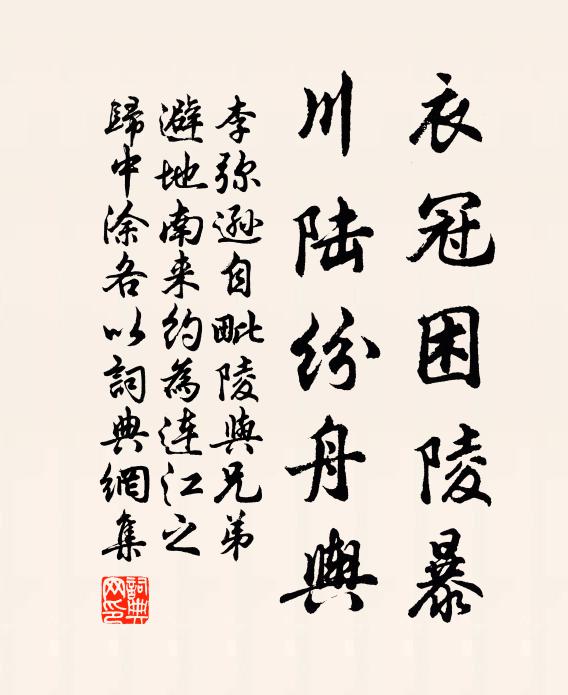 衣冠困陵暴
川陆纷舟舆
李弥逊自毗陵与兄弟
避地南来约为连江之
归中涂各以词典网集
詞典
网印